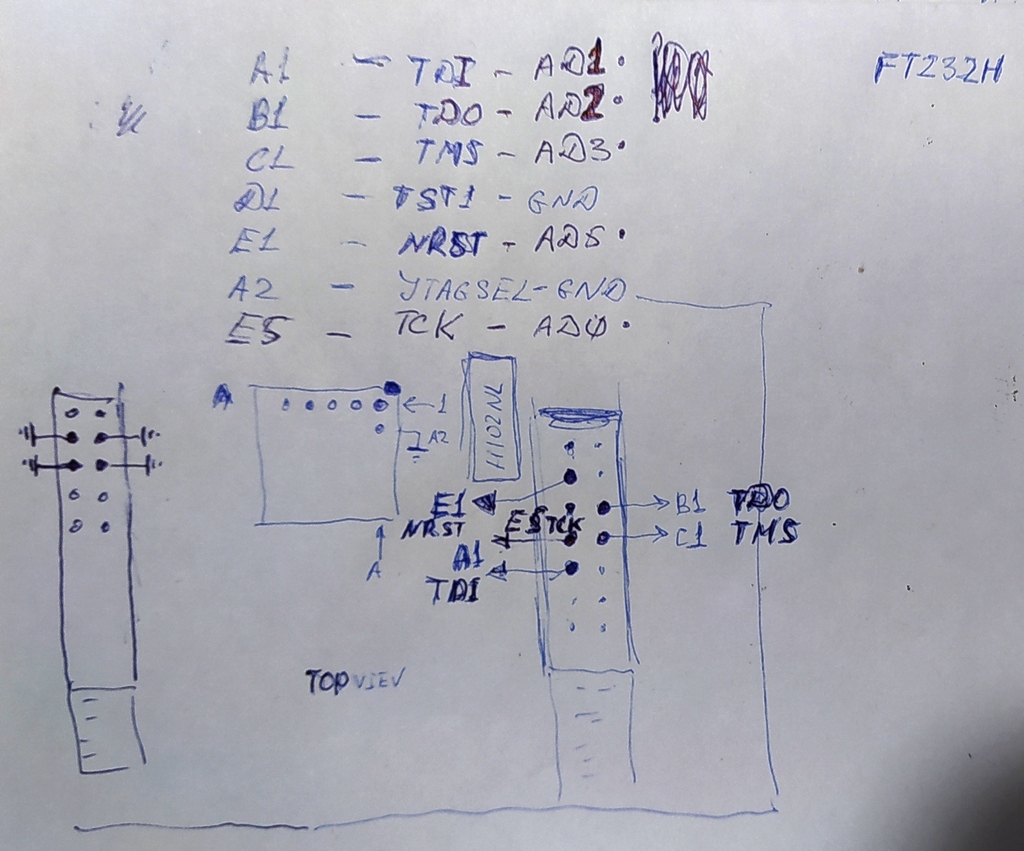 A1 - TDI - AD1. FT232H
B1 - TDO - AD2.
C1 - TMS - AD3.
D1 - TST1 - GND
E1 - NRST - AD5.
A2 - JTAGSEL - GND
E5 - TCK - AD0.
A
← 1
A2
H1102NL
A
E1
NRST
E5 TCK
A1
TDI
B1 TDO
C1 TMS
TOP VIEV